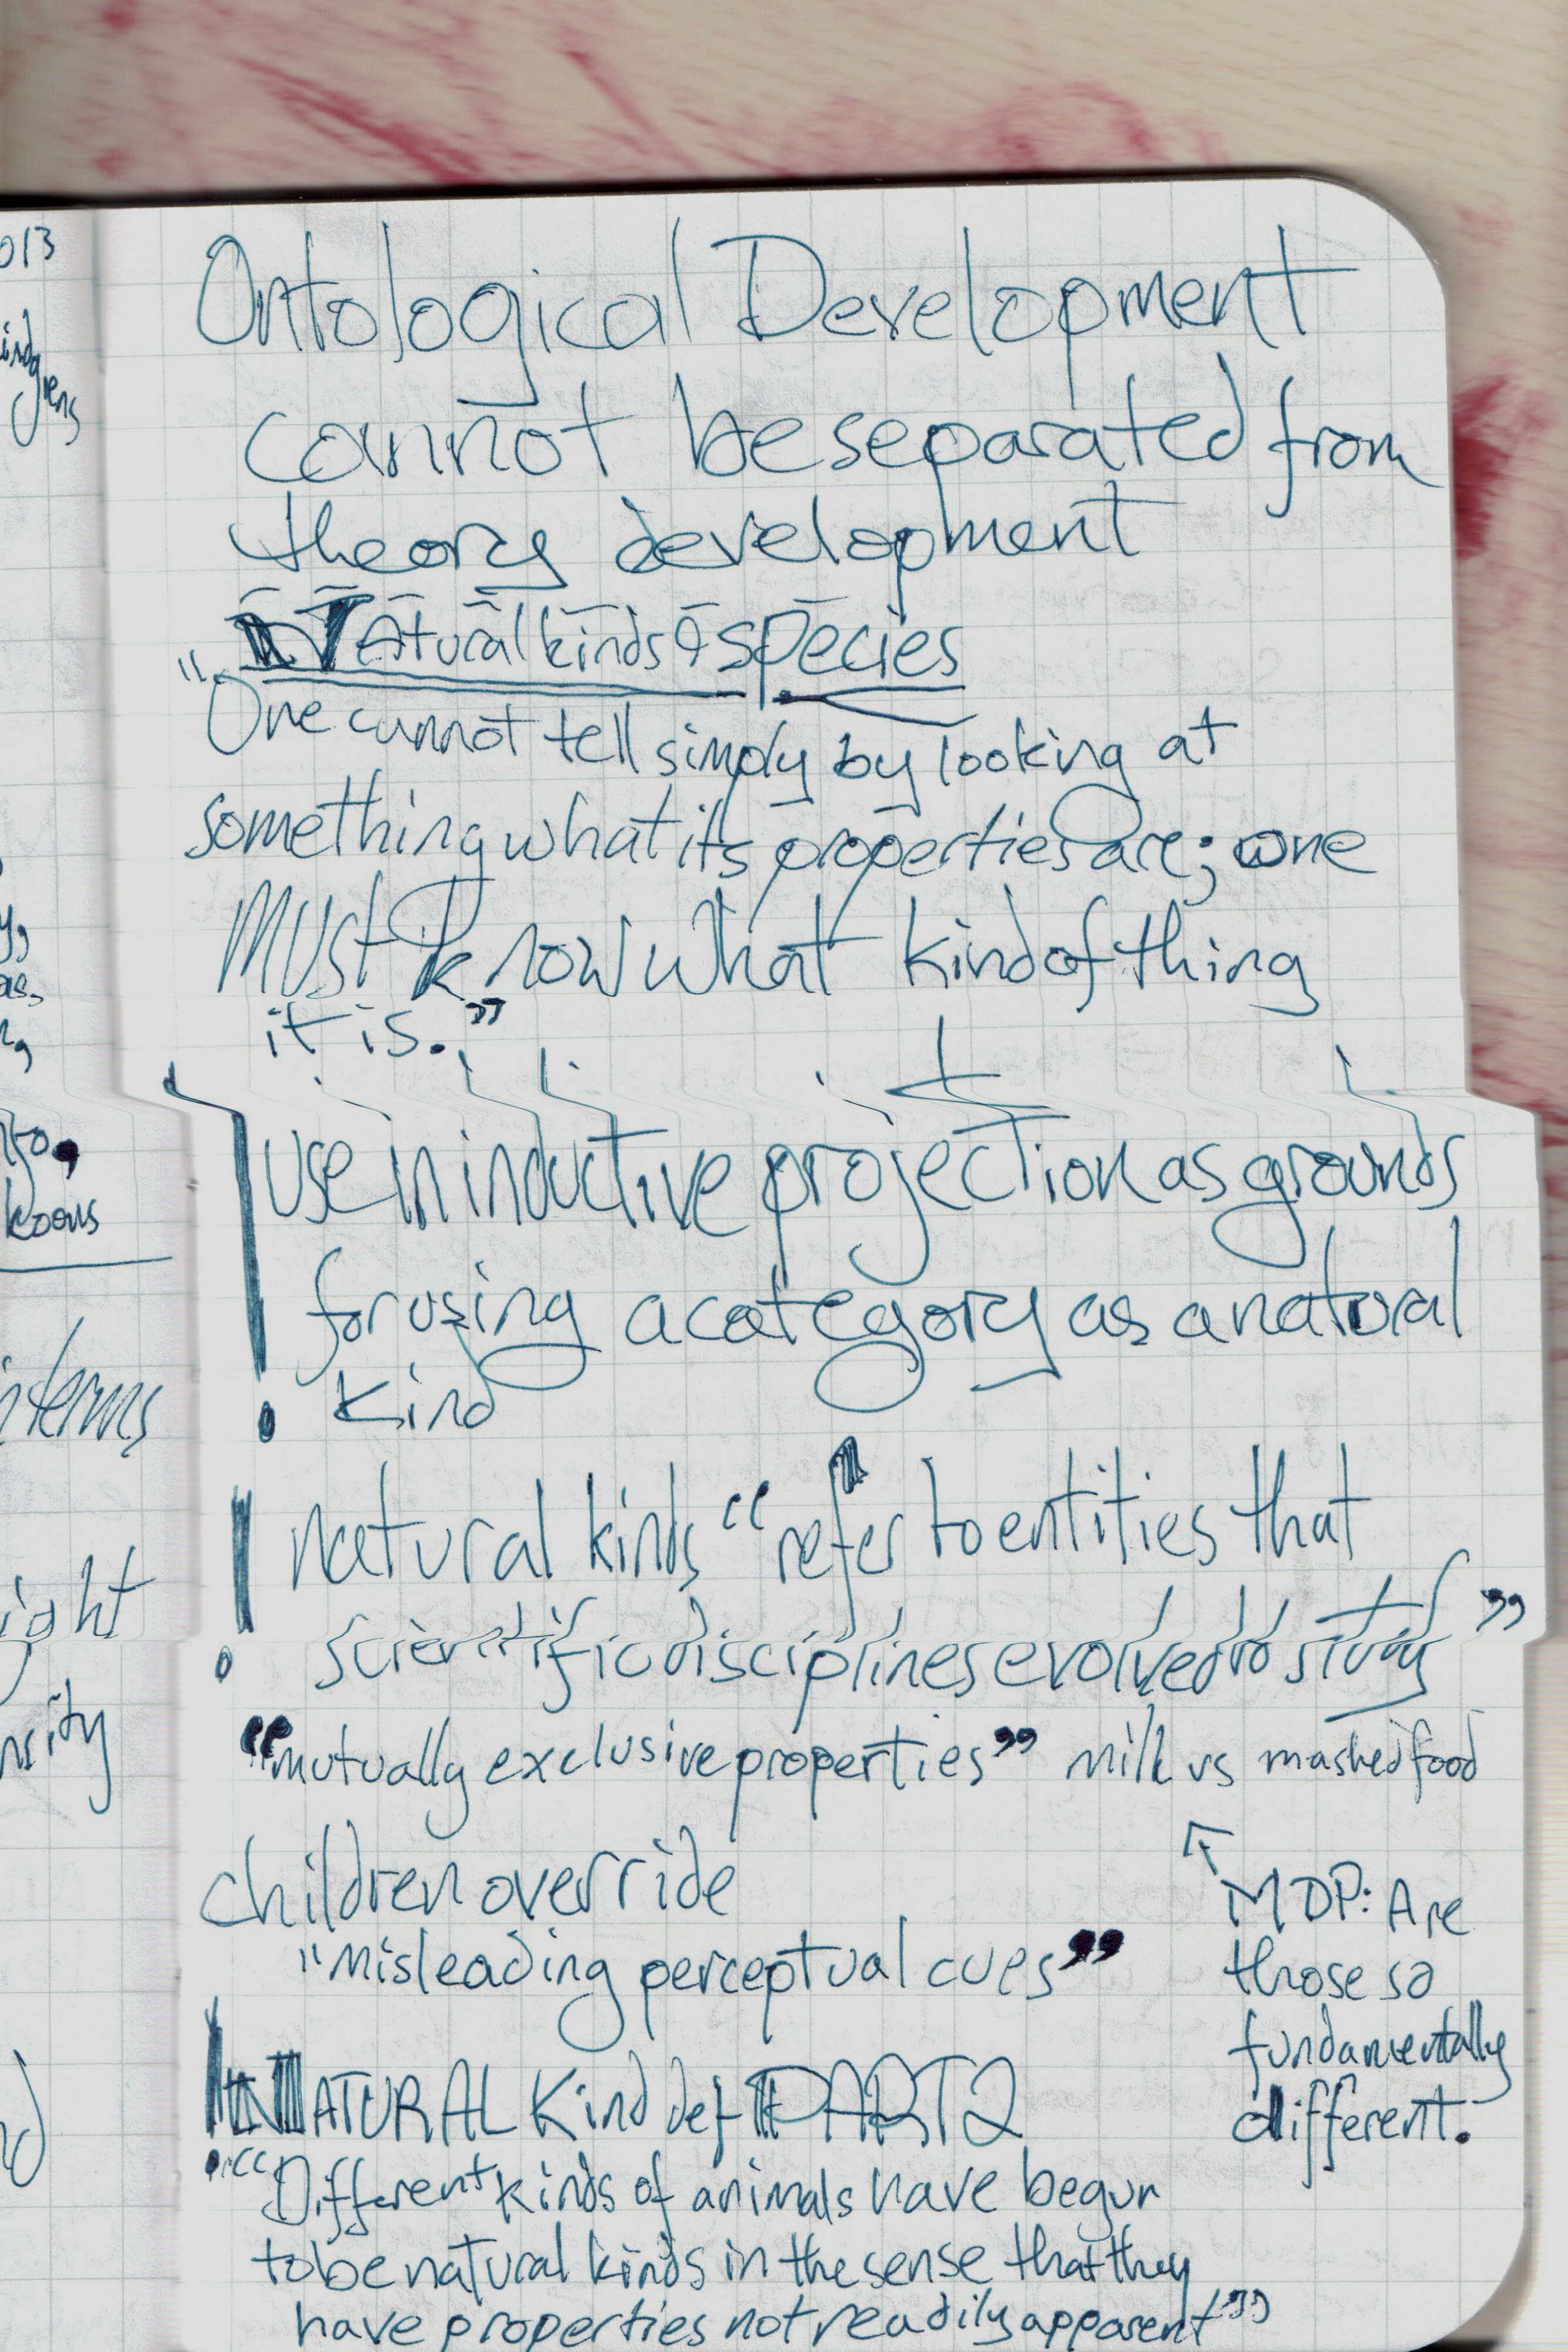 Ontological Development
cannot be separated from
theory development
Natural kinds & species
"One cannot tell simply by looking at
something what its properties are; one
MUST know what kind of thing
it is."
! use in inductive projection as grounds
for using a category as a natural
kind
! natural kinds "refer to entities that
scientific disciplines evolved to study"
"mutually exclusive properties" milk vs mashed food
↖ MDP: Are
those so
fundamentally
different.
children override
"misleading perceptual cues"
! NATURAL Kind def PART 2
"Different kinds of animals have begun
to be natural kinds in the sense that they
have properties not readily apparent"
013
koons
terms
ight